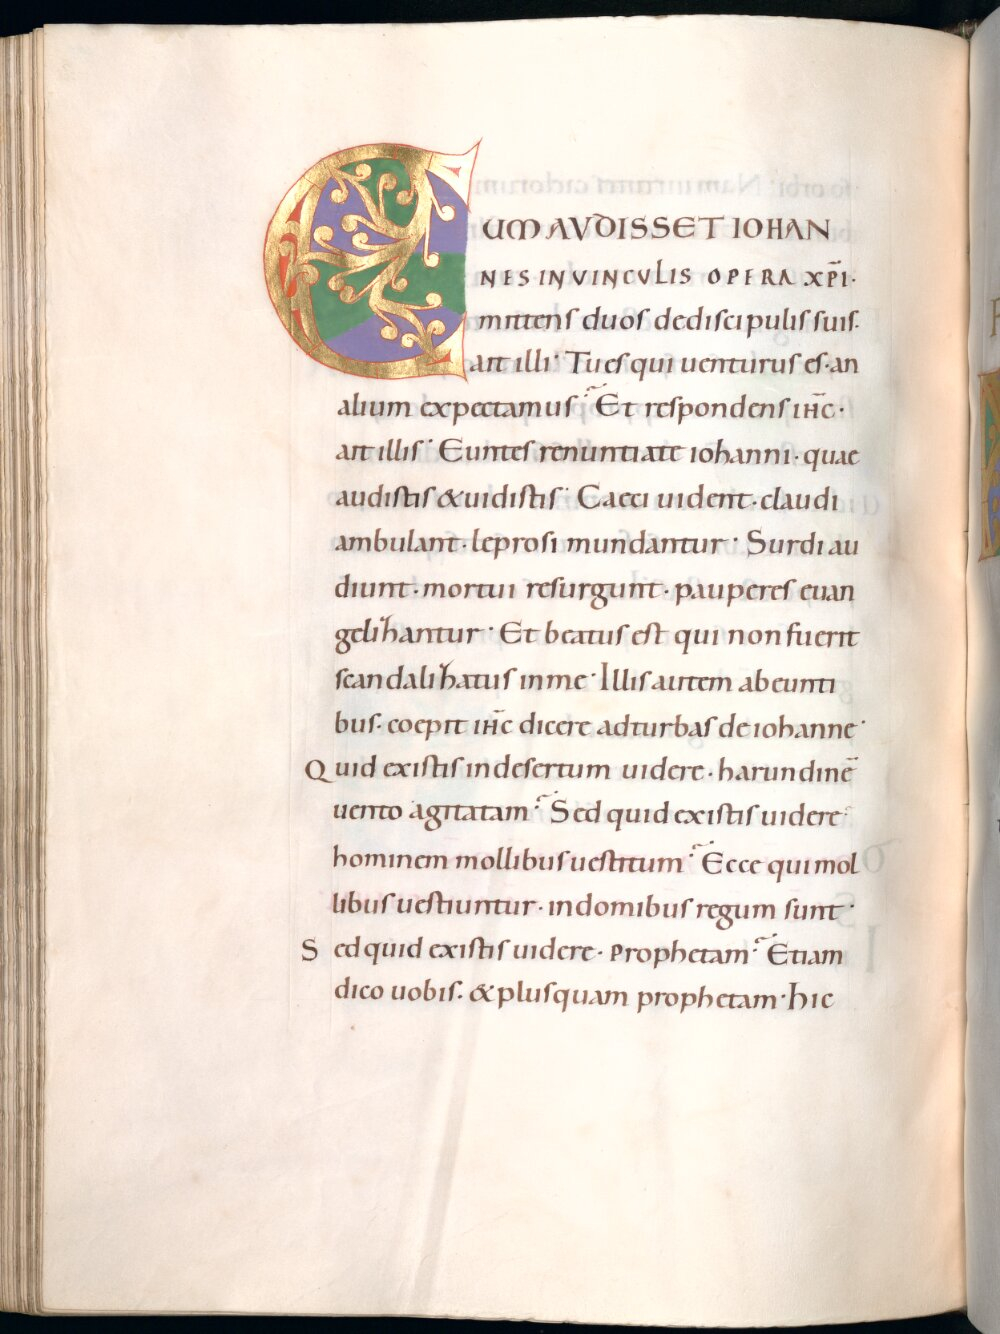 CUM AVDISSET IOHAN
NES IN VINCVLIS OPERA XP̄I·
mittens duos de discipulis suis·
ait illi· Tu es qui uenturus es· an
alium expectamus? Et respondens iħc·
ait illis· Euntes renuntiate iohanni· quae
audistis & uidistis· Caeci uident· claudi
ambulant· leprosi mundantur· Surdi au
diunt· mortui resurgunt· pauperes euan
gelihantur· Et beatus est qui non fuerit
scandalihatus in me· Illis autem abeunti
bus· coepit iħc dicere ad turbas de iohanne·
Quid existis in desertum uidere· harundinē
uento agitatam? Sed quid existis uidere·
hominem mollibus uestitum? Ecce qui mol
libus uestiuntur· in domibus regum sunt·
Sed quid existis uidere· Prophetam? Etiam
dico uobis· & plus quam prophetam· hic